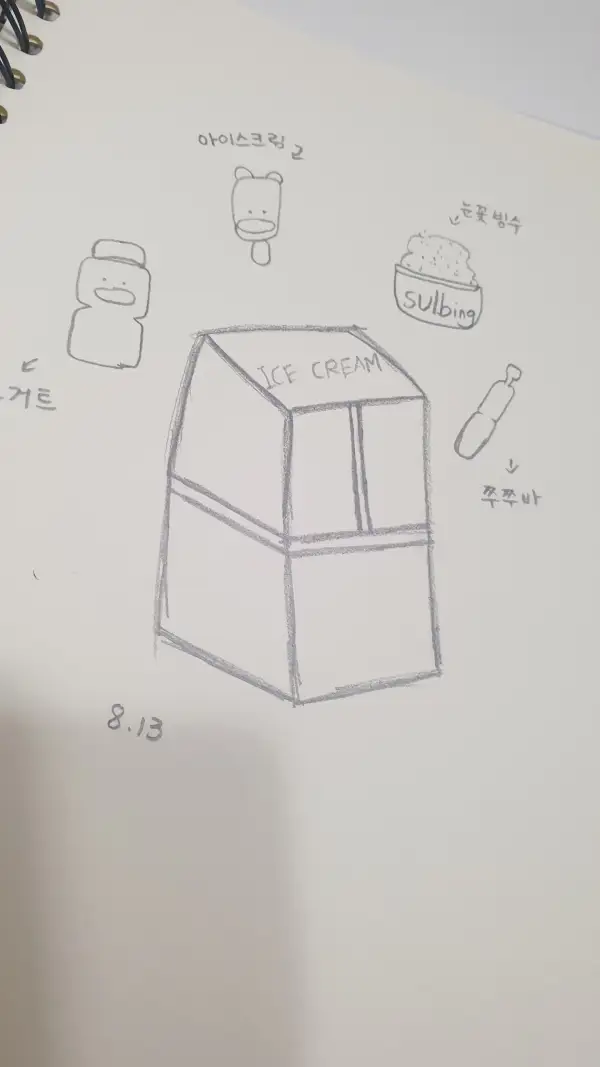 아이스크림
눈꽃빙수
sulbing
ICE CREAM
거트
쭈쭈바
8.13